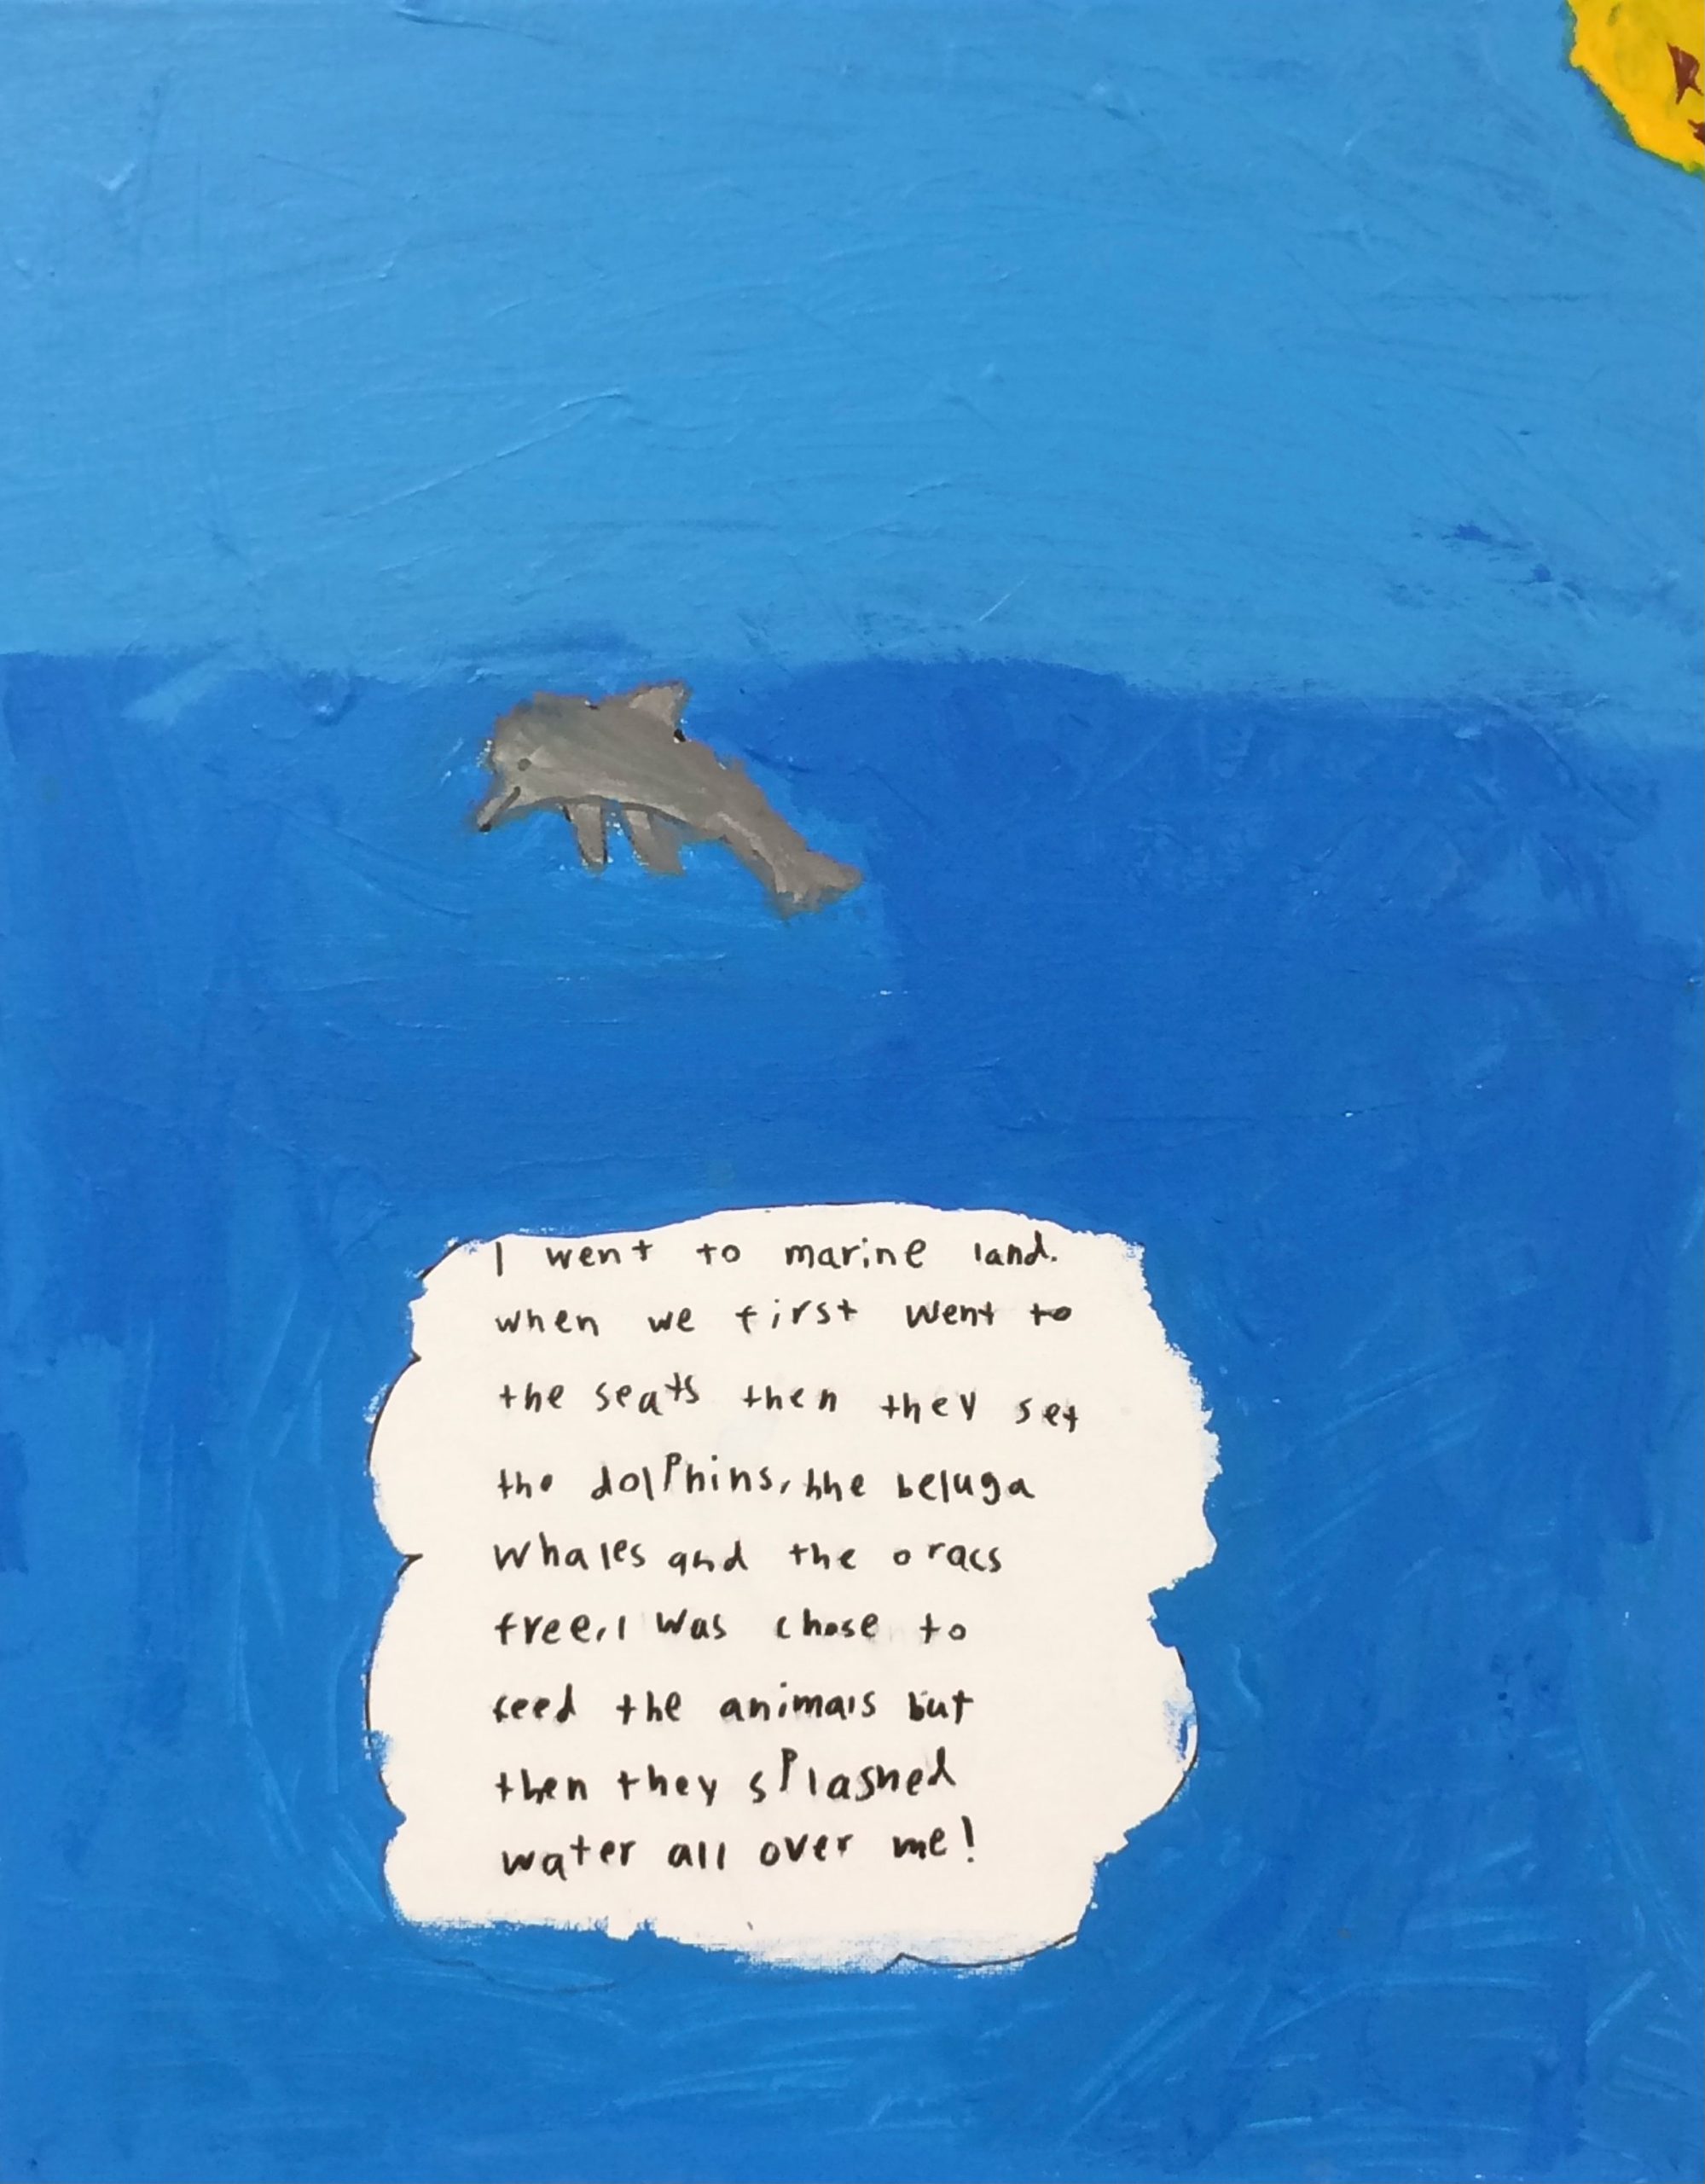 I went to marine land.
when we first went to
the seats then they set
the dolphins, the beluga
whales and the oracs
free, I was chose to
feed the animals but
then they splashed
water all over me!